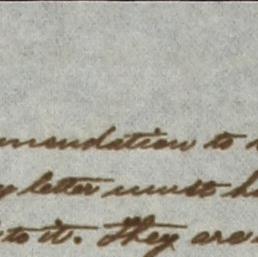 mendation to
letter must
to it. They are